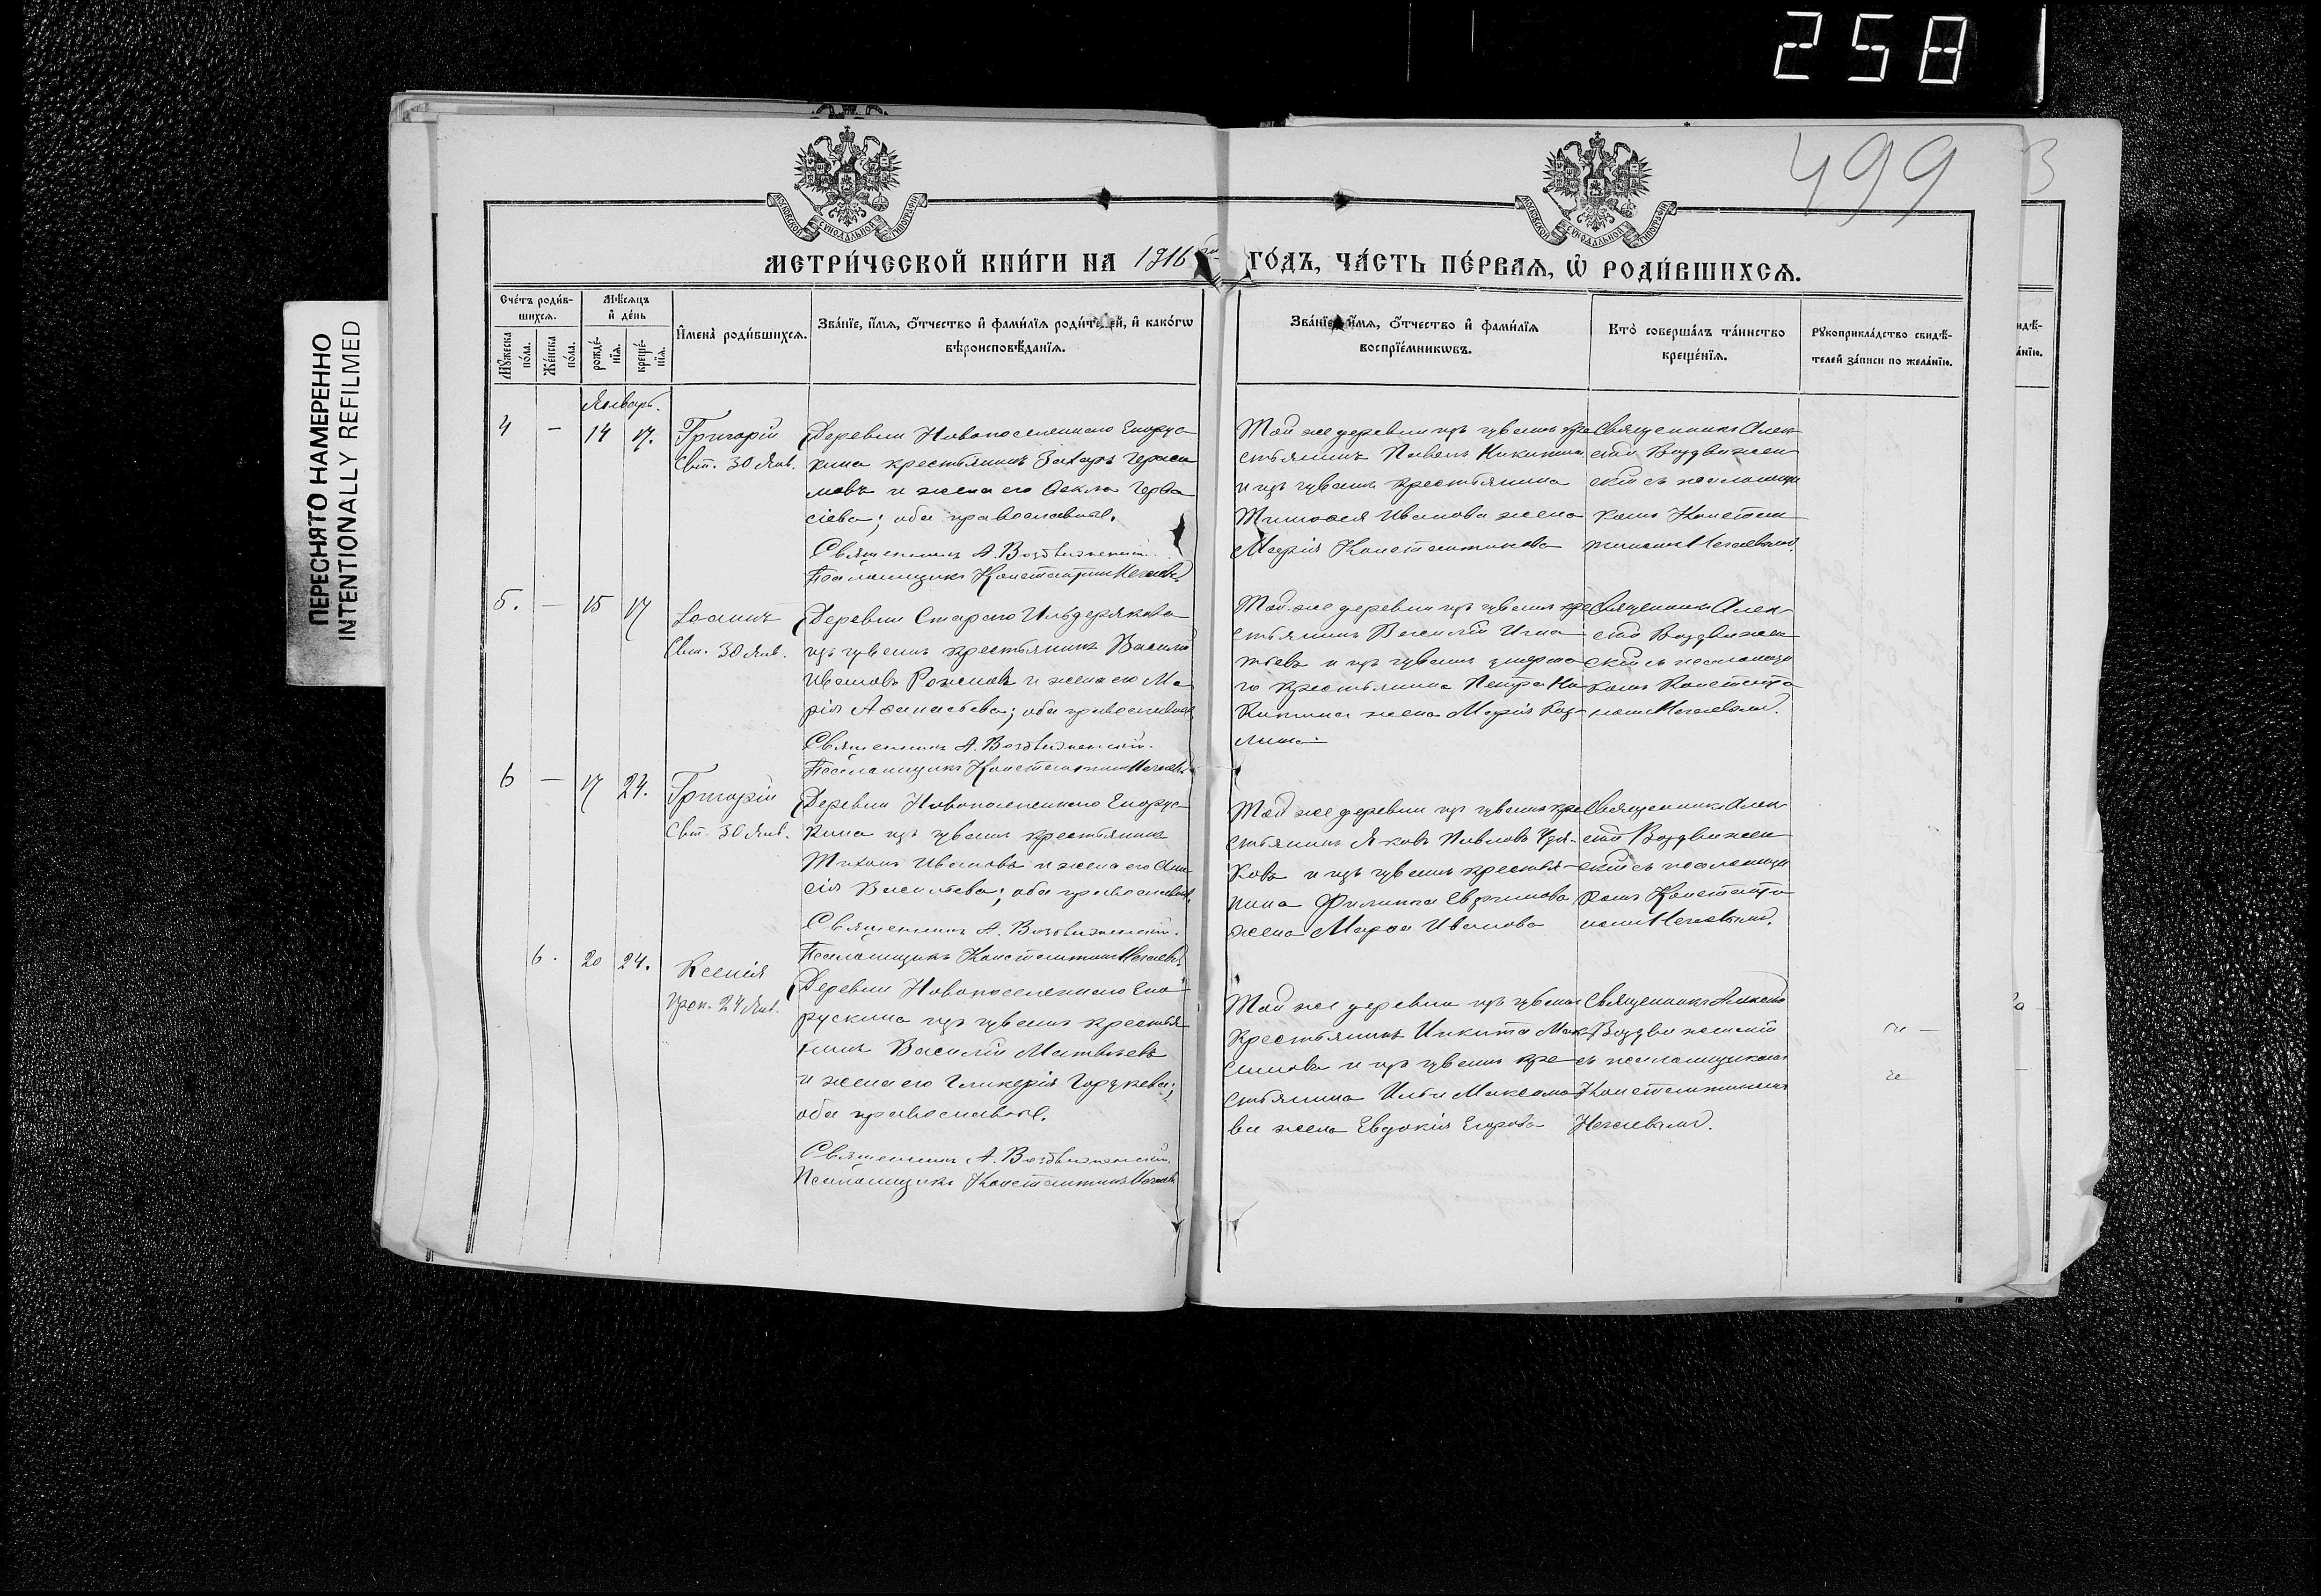 258
499
3
ПЕРЕСНЯТО НАМЕРЕННО
INTENTIONALLY REFILMED
МЕТРИ́ЧЕСКОЙ КНИ́ГИ НА 1916 ГО́ДЪ, ЧА́СТЬ ПЕ́РВАѦ, Ѡ҆ РОДИ́ВШИХСѦ.
Сче́тъ роди́в-
шихсѧ.
Мꙋ́жеска
по́ла.
Же́нска
по́ла.
Мѣ́сѧцъ
и҆ де́нь
рожде́-
нїѧ.
креще́-
нїѧ.
И҆мена̀ роди́вшихсѧ.
Зва́нїе, и҆́мѧ, ѻ҆́тчество и҆ фами́лїѧ роди́телей, и҆ како́гѡ
вѣроисповѣ́данїѧ.
Зва́нїе, и҆́мѧ, ѻ҆́тчество и҆ фами́лїѧ
воспрїе́мникѡвъ.
Кто̀ соверша́лъ та́инство
креще́нїѧ.
Рꙋкоприкла́дство свидѣ́-
телей за́писи по жела́нїю.
Январь.
4 – 14 17.
Григорій
Свт. 30 Янв.
Деревни Новопоселеннаго Енорус-
кина крестьянинъ Захаръ Гераси
мовъ и жена его Ѳекла Герва
сіева; оба православные.
Священникъ А. Воздвиженскій.
Псаломщикъ Константинъ
Той же деревни изъ чувашъ кре
стьянинъ Павелъ Никитинъ
и изъ чувашъ крестьянина
Тимоѳея Иванова жена
Марія Константинова
Священникъ Алек-
сѣй Воздвижен
скій съ псаломщи
комъ Констан
5. – 15 17
Іоаннъ
Свт. 30 Янв.
Деревни Стараго Ильдерякова
изъ чувашъ крестьянинъ Василій
Ивановъ и жена его Ма
рія Аѳанасьева; оба православные
Священникъ А. Воздвиженскій.
Псаломщикъ Константинъ
Той же деревни изъ чувашъ кре
стьянинъ Василій Игна
тьевъ и изъ чувашъ умерша
го крестьянина Петра Ни
китина жена Марія Коз-
мина.
Священникъ Алек-
сѣй Воздвижен
скій съ псаломщи
комъ Константи
6 – 17 24.
Григорій
Свт. 30 Янв.
Деревни Новопоселеннаго Енорус-
кина изъ чувашъ крестьянинъ
Тихонъ Ивановъ и жена его Ани
сія Васильева; оба православные
Священникъ А. Воздвиженскій.
Псаломщикъ Константинъ
Той же деревни изъ чувашъ кре
стьянинъ Яковъ Павловъ
и изъ чувашъ крестья-
нина Филиппа Ефимова
жена Марѳа Иванова
Священникъ Алек
сѣй Воздвижен
скій съ псаломщи
комъ Константи
6. 20 24.
Ксенія
Преп. 24 Янв.
Деревни Новопоселеннаго Ено-
рускина изъ чувашъ крестья
нинъ Василій Матвѣевъ
и жена его Гликерія
оба православные.
Священникъ А. Воздвиженскій.
Псаломщикъ Константинъ
Той же деревни изъ чувашъ
крестьянинъ Никита Мак-
симовъ и изъ чувашъ кре
стьянина Ильи Максимо
ва жена Евдокія Егорова
Священникъ Алексѣй
Воздвиженскій
съ псаломщикомъ
Константиномъ